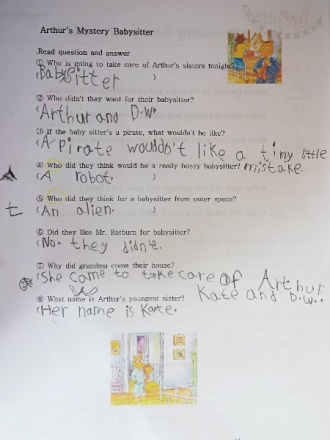 Arthur's Mystery Babysitter
Read question and answer
① Who is going to take care of Arthur's sisters tonight?
(Babysitter )
② Who didn't they want for their babysitter?
(Arthur and D.W.
③ If the baby sitter's a pirate, what wouldn't he like?
(A pirate wouldn't like a tiny little
mistake.
④ Who did they think would be a really bossy babysitter?
(A robot. )
⑤ Who did they think for a babysitter from outer space?
t
(An alien. )
⑥ Did they like Mr. Ratburn for babysitter?
(No. they didnt.
⑦ Why did grandma come their house?
(She come to take care of Arthur
Kate and D.W..
⑧ What name is Arthur's youngest sister?
(Her name is Kate.